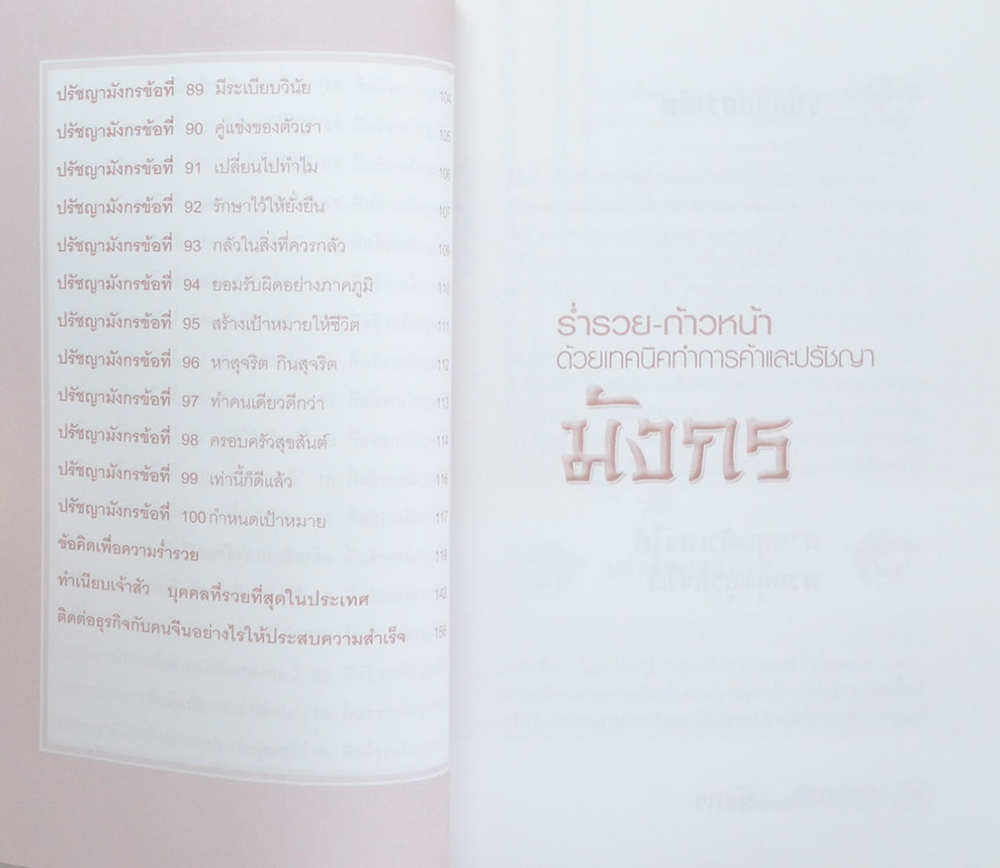 ปรัชญามังกรข้อที่ 89 มีระเบียบวินัย 104
ปรัชญามังกรข้อที่ 90 คู่แข่งของตัวเรา 105
ปรัชญามังกรข้อที่ 91 เปลี่ยนไปทำไม 106
ปรัชญามังกรข้อที่ 92 รักษาไว้ให้ยั่งยืน 107
ปรัชญามังกรข้อที่ 93 กลัวในสิ่งที่ควรกลัว 109
ปรัชญามังกรข้อที่ 94 ยอมรับผิดอย่างภาคภูมิ 110
ปรัชญามังกรข้อที่ 95 สร้างเป้าหมายให้ชีวิต 111
ปรัชญามังกรข้อที่ 96 หาสุจริต กินสุจริต 112
ปรัชญามังกรข้อที่ 97 ทำคนเดียวดีกว่า 113
ปรัชญามังกรข้อที่ 98 ครอบครัวสุขสันต์ 114
ปรัชญามังกรข้อที่ 99 เท่านี้ก็ดีแล้ว 116
ปรัชญามังกรข้อที่ 100 กำหนดเป้าหมาย 117
ข้อคิดเพื่อความร่ำรวย 118
ทำเนียบเจ้าสัว บุคคลที่รวยที่สุดในประเทศ
ติดต่อธุรกิจกับคนจีนอย่างไรให้ประสบความสำเร็จ 156
ร่ำรวย-ก้าวหน้า
ด้วยเทคนิคทำการค้าและปรัชญา
มังกร